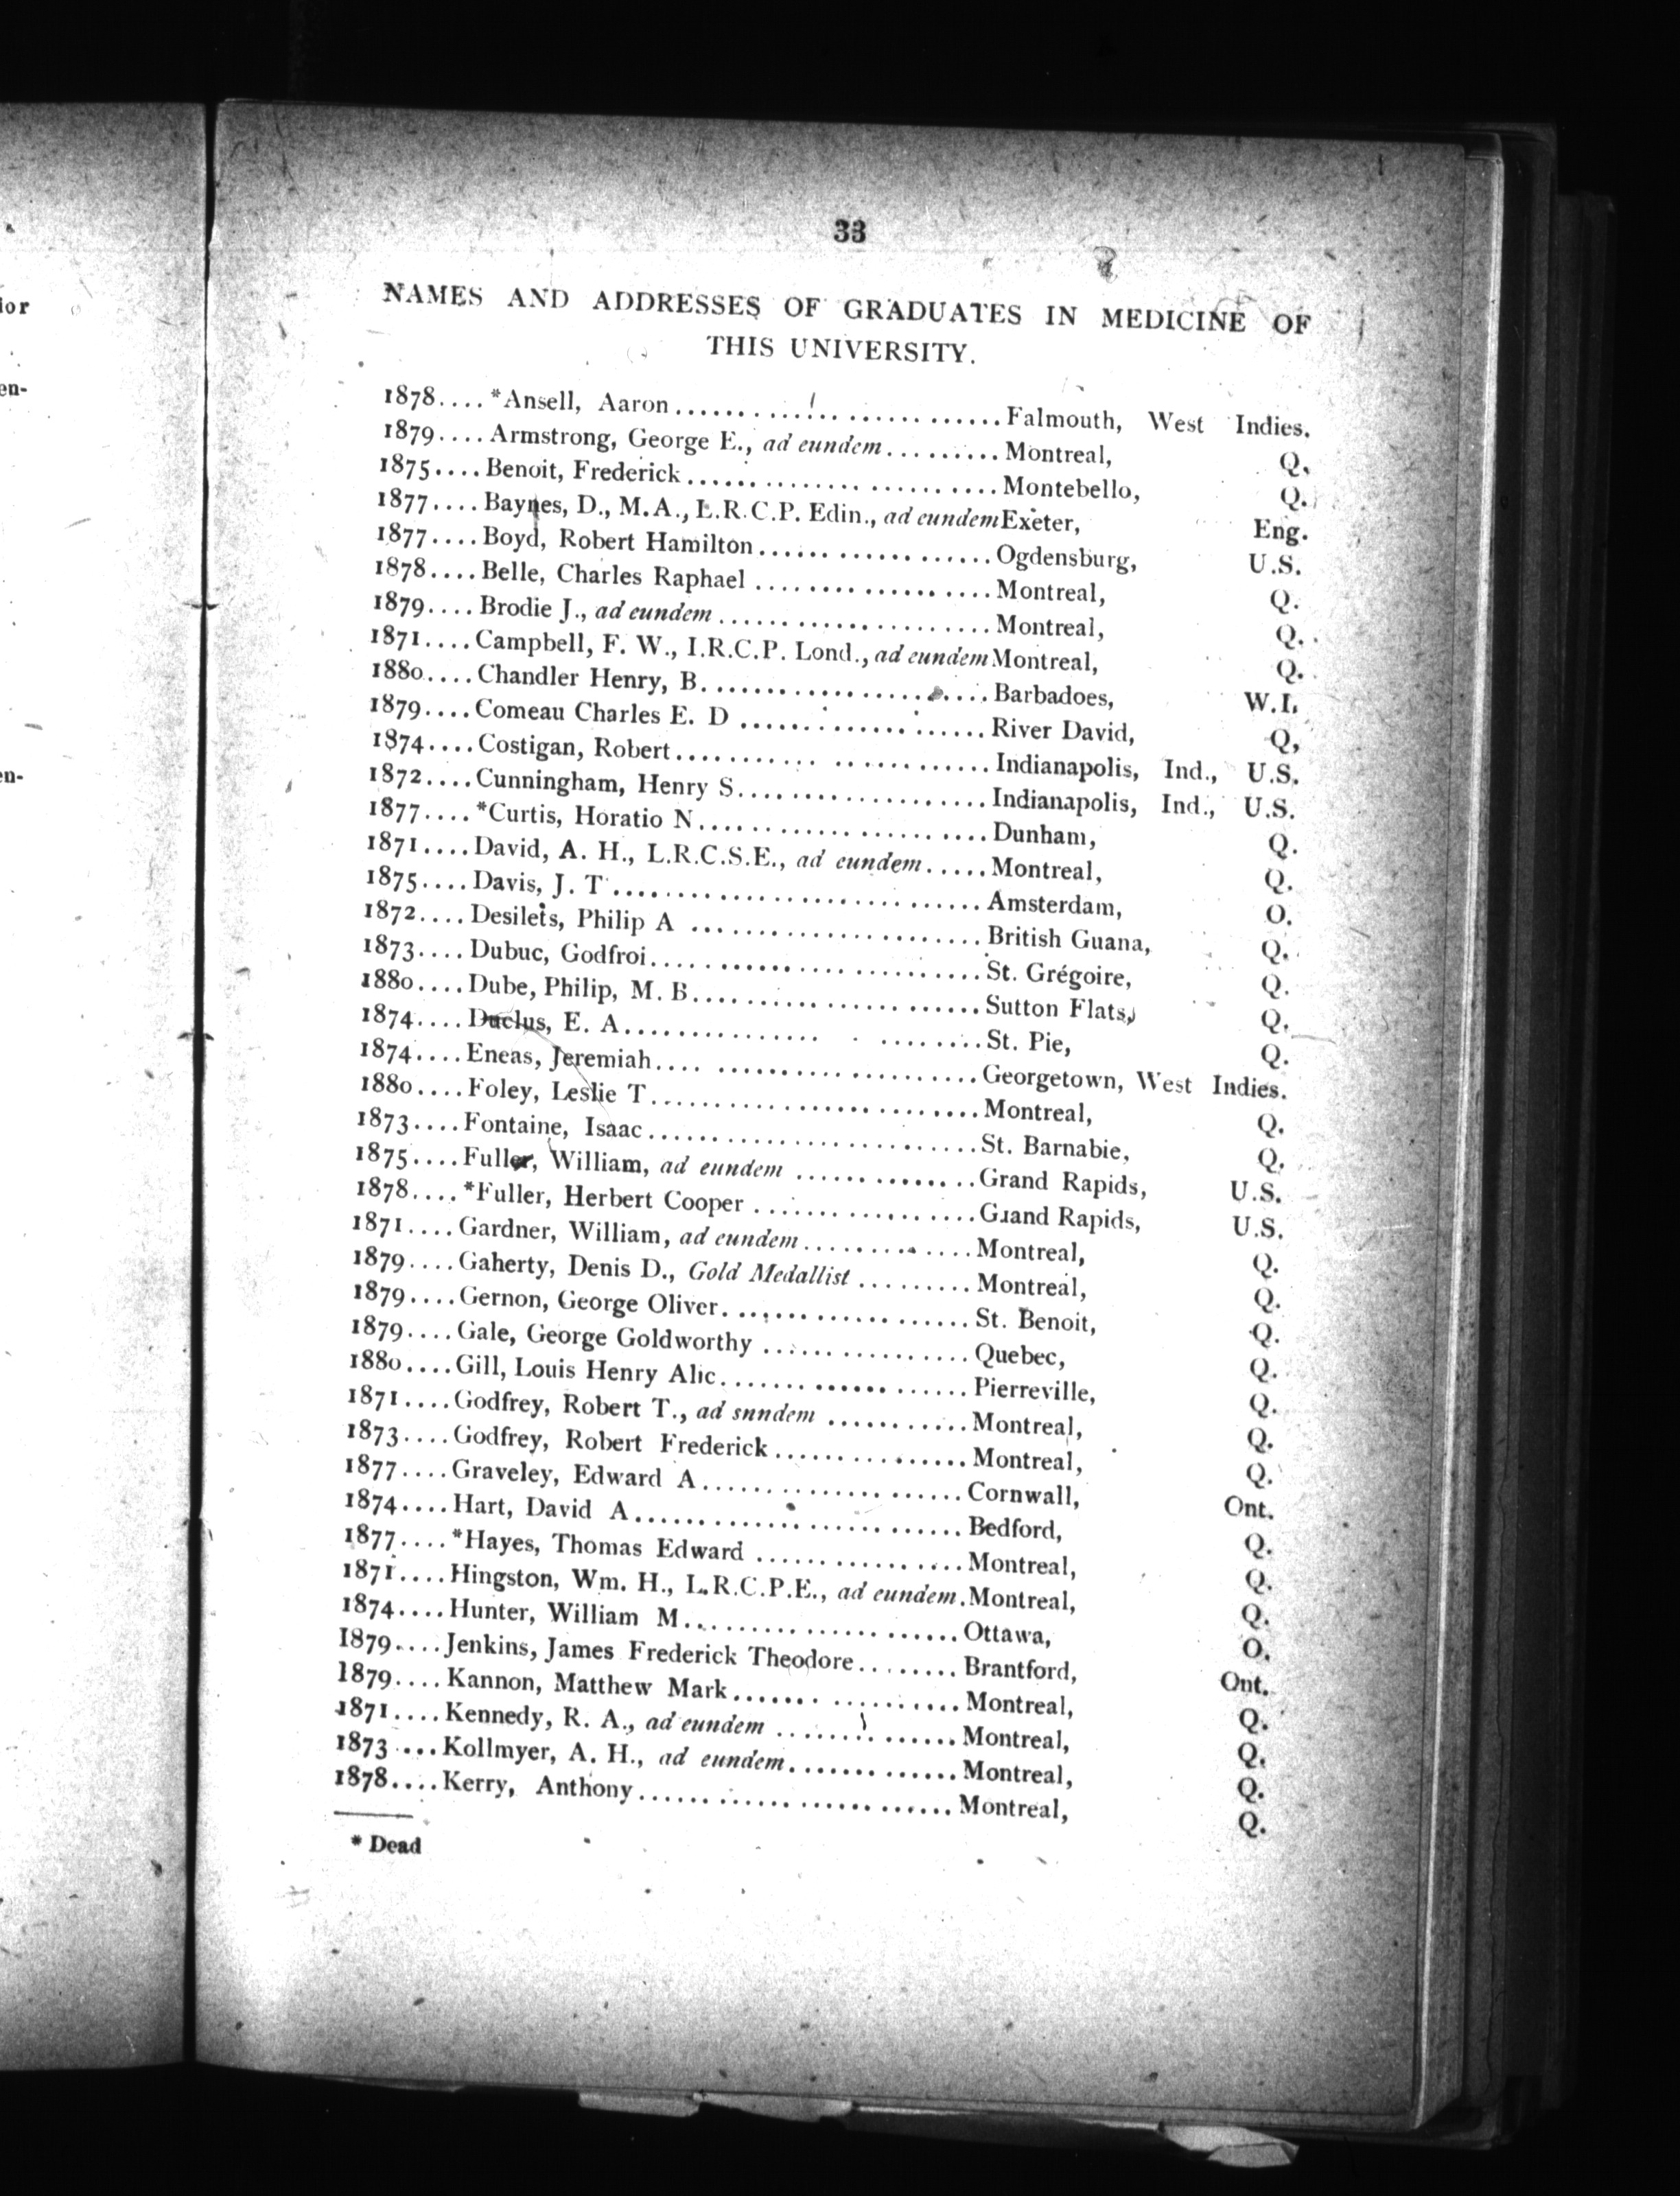 ior
en-
en-
33
NAMES AND ADDRESSES OF GRADUATES IN MEDICINE OF
THIS UNIVERSITY.
1878.... *Ansell, Aaron.......................... Falmouth, West Indies.
1879.... Armstrong, George E., ad eundem......... Montreal, Q.
1875.... Benoit, Frederick.......................... Montebello, Q.
1877.... Baynes, D., M.A., L.R.C.P. Edin., ad eundem Exeter, Eng.
1877.... Boyd, Robert Hamilton................... Ogdensburg, U.S.
1878.... Belle, Charles Raphael ................... Montreal, Q.
1879.... Brodie J., ad eundem...................... Montreal, Q.
1871.... Campbell, F. W., I.R.C.P. Lond., ad eundem Montreal, Q.
1880.... Chandler Henry, B....................... Barbadoes, W.I.
1879.... Comeau Charles E. D .................... River David, Q,
1874.... Costigan, Robert......................... Indianapolis, Ind., U.S.
1872.... Cunningham, Henry S.................... Indianapolis, Ind., U.S.
1877.... *Curtis, Horatio N....................... Dunham, Q.
1871.... David, A. H., L.R.C.S.E., ad eundem..... Montreal, Q.
1875.... Davis, J. T.............................. Amsterdam, O.
1872.... Desilets, Philip A ....................... British Guana, Q.
1873.... Dubuc, Godfroi........................... St. Grégoire, Q.
1880.... Dube, Philip, M. B....................... Sutton Flats, Q.
1874.... Duclus, E. A............................. St. Pie, Q.
1874.... Eneas, Jeremiah.......................... Georgetown, West Indies.
1880.... Foley, Leslie T.......................... Montreal, Q.
1873.... Fontaine, Isaac.......................... St. Barnabie, Q.
1875.... Fuller, William, ad eundem .............. Grand Rapids, U.S.
1878.... *Fuller, Herbert Cooper .................. Grand Rapids, U.S.
1871.... Gardner, William, ad eundem.............. Montreal, Q.
1879.... Gaherty, Denis D., Gold Medallist ......... Montreal, Q.
1879.... Gernon, George Oliver.................... St. Benoit, Q.
1879.... Gale, George Goldworthy ................. Quebec, Q.
1880.... Gill, Louis Henry Alic.................... Pierreville, Q.
1871.... Godfrey, Robert T., ad snndem ........... Montreal, Q.
1873.... Godfrey, Robert Frederick................ Montreal, Q.
1877.... Graveley, Edward A..................... Cornwall, Ont.
1874.... Hart, David A.......................... Bedford, Q.
1877.... *Hayes, Thomas Edward ................. Montreal, Q.
1871.... Hingston, Wm. H., L.R.C.P.E., ad eundem. Montreal, Q.
1874.... Hunter, William M...................... Ottawa, O.
1879.... Jenkins, James Frederick Theodore........ Brantford, Ont.
1879.... Kannon, Matthew Mark.................. Montreal, Q.
1871.... Kennedy, R. A., ad eundem .............. Montreal, Q.
1873.... Kollmyer, A. H., ad eundem.............. Montreal, Q.
1878.... Kerry, Anthony......................... Montreal, Q.
* Dead